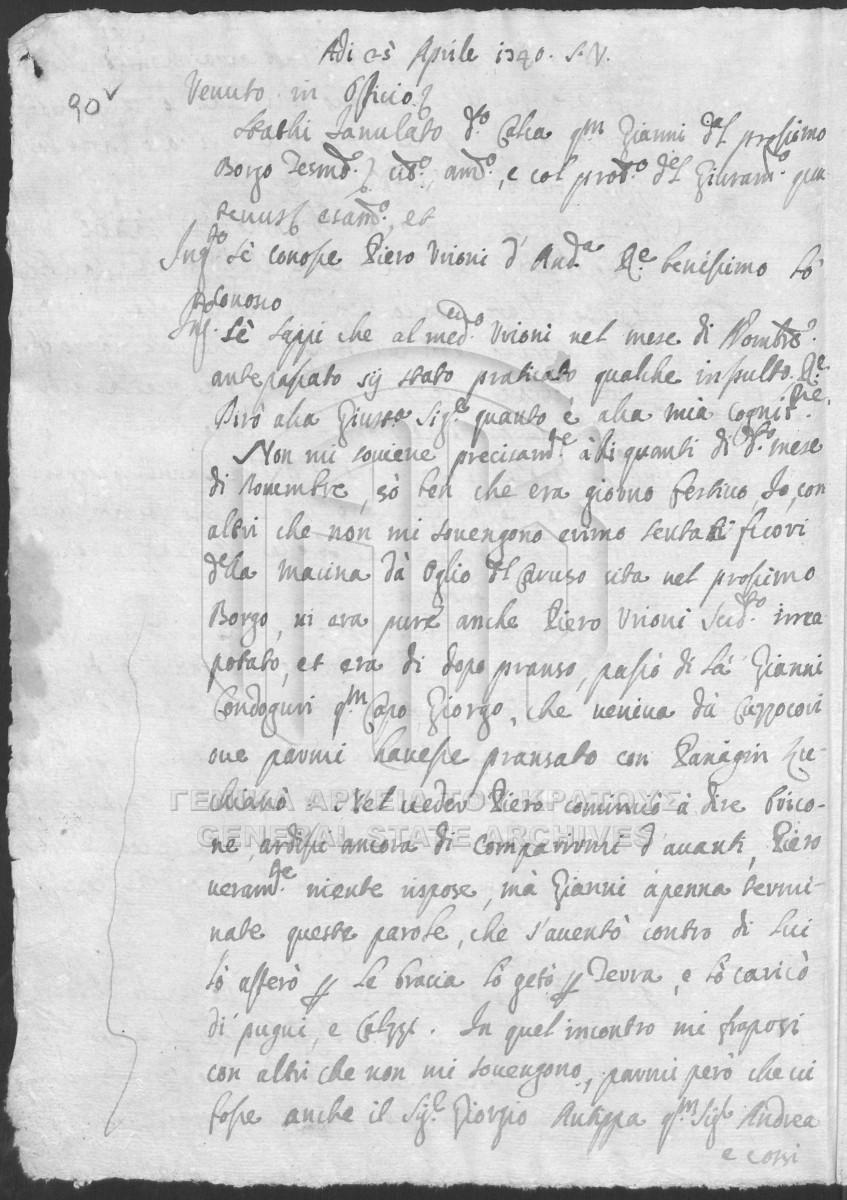 Adi 25 Aprile 1740. S.V.
90
Venuto in Officio
Stathi Lanulato d.to Calca q.m Gianni dal prossimo
Borgo Tesmo. cit.o, am.o, e col prot.o del Giuram.o
esam.o, et
Int.to Sè conosse Piero Vrioni d' And.a R.e benissimo lò
conosco
Int. Sè sappi che al med.o Vrioni nel mese di Nombre
antepassato sij stato praticato qualche insulto. R.e
Dirò alla Giust.a Sig.r quanto è alla mia cognit.ne.
Non mi soviene precisam.te à di quanti di d.to mese
di Novembre, sò ben che era giorno festivo, Io, con
altri che non mi sovengono erimo sentati fuori
della macina dà Oglio del Caruso sita nel prossimo
Borgo, vi era pure anche Piero Vrioni Sud.to
potato, et era di dopo pranso, passò di là Gianni
Condoguri q.m Capo Giorgo, che veniva dà Cuzzocovi
ove parmi havesse pransato con Panagin
chianò. Nel veder Piero cominciò à dire brico-
ne, ardisci ancora di comparirmi d'avanti, Piero
veram.te niente rispose, mà Gianni àpenna termi-
nate queste parole, che s'aventò contro di lui
lò afferò p le bracia lò getò p Terra, e lò caricò
di pugni, e Calzi. In quel'incontro mi fraposi
con altri che non mi sovengono, parmi però che vi
fosse anche il Sig.r Giorgio Antippa q.m Sig.r Andrea
e corsi
ΓΕΝΙΚΑ ΑΡΧΕΙΑ ΤΟΥ ΚΡΑΤΟΥΣ
GENERAL STATE ARCHIVES